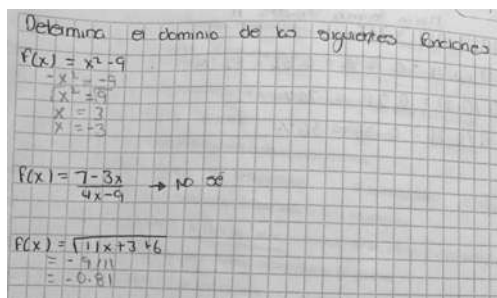 Determina el dominio de las siguientes funciones
f(x) = x² - 9
-x² = -9
x² = 9
x = 3
x = -3
f(x) = 7-3x / 4x-9 → NO sé
f(x) = √11x+3+6
= -9/11
= -0.81